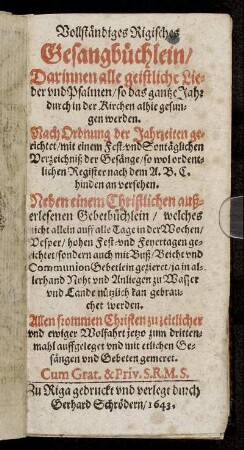 Vollständiges Rigisches
Gesangbüchlein/
Darinnen alle geistliche Lie-
der vnd Psalmen/ so das gantze Jahr
durch in der Kirchen alhie gesun-
gen werden.
Nach Ordnung der Jahrzeiten ge-
richtet/ mit einem Fest-vnd Sontäglichen
Verzeichniß der Gesänge/ so wol ordent-
lichen Register nach dem A. B. C.
hinden an versehen.
Neben einem Christlichen auß-
erlesenen Gebetbüchlein/ welches
nicht allein auff alle Tage in der Wochen/
Vesper/ hohen Fest-vnd Feyertagen ge-
richtet/ sondern auch mit Buß/ Beicht vnd
Communion Gebetlein gezieret/ ja in al-
lerhand Noht vnd Anliegen zu Wasser
vnd Lande nützlich kan gebrau-
chet werden.
Allen frommen Christen zu zeitlicher
vnd ewiger Wolfahrt jetzo zum dritten-
mahl auffgeleget vnd mit etlichen Ge-
sängen vnd Gebeten gemeret.
Cum Grat. & Priv. S. R. M. S.
Zu Riga gedruckt vnd verlegt durch
Gerhard Schrödern/ 1643.